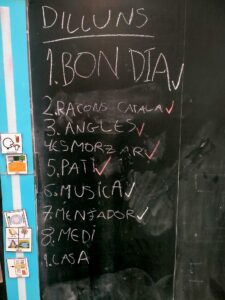 DILLUNS
1. BON DIA
2. RACONS CATALA
3. ANGLES
4. ESMORZAR
5. PATI
6. MUSICA
7. MENJADOR
8. MEDI
9. CASA